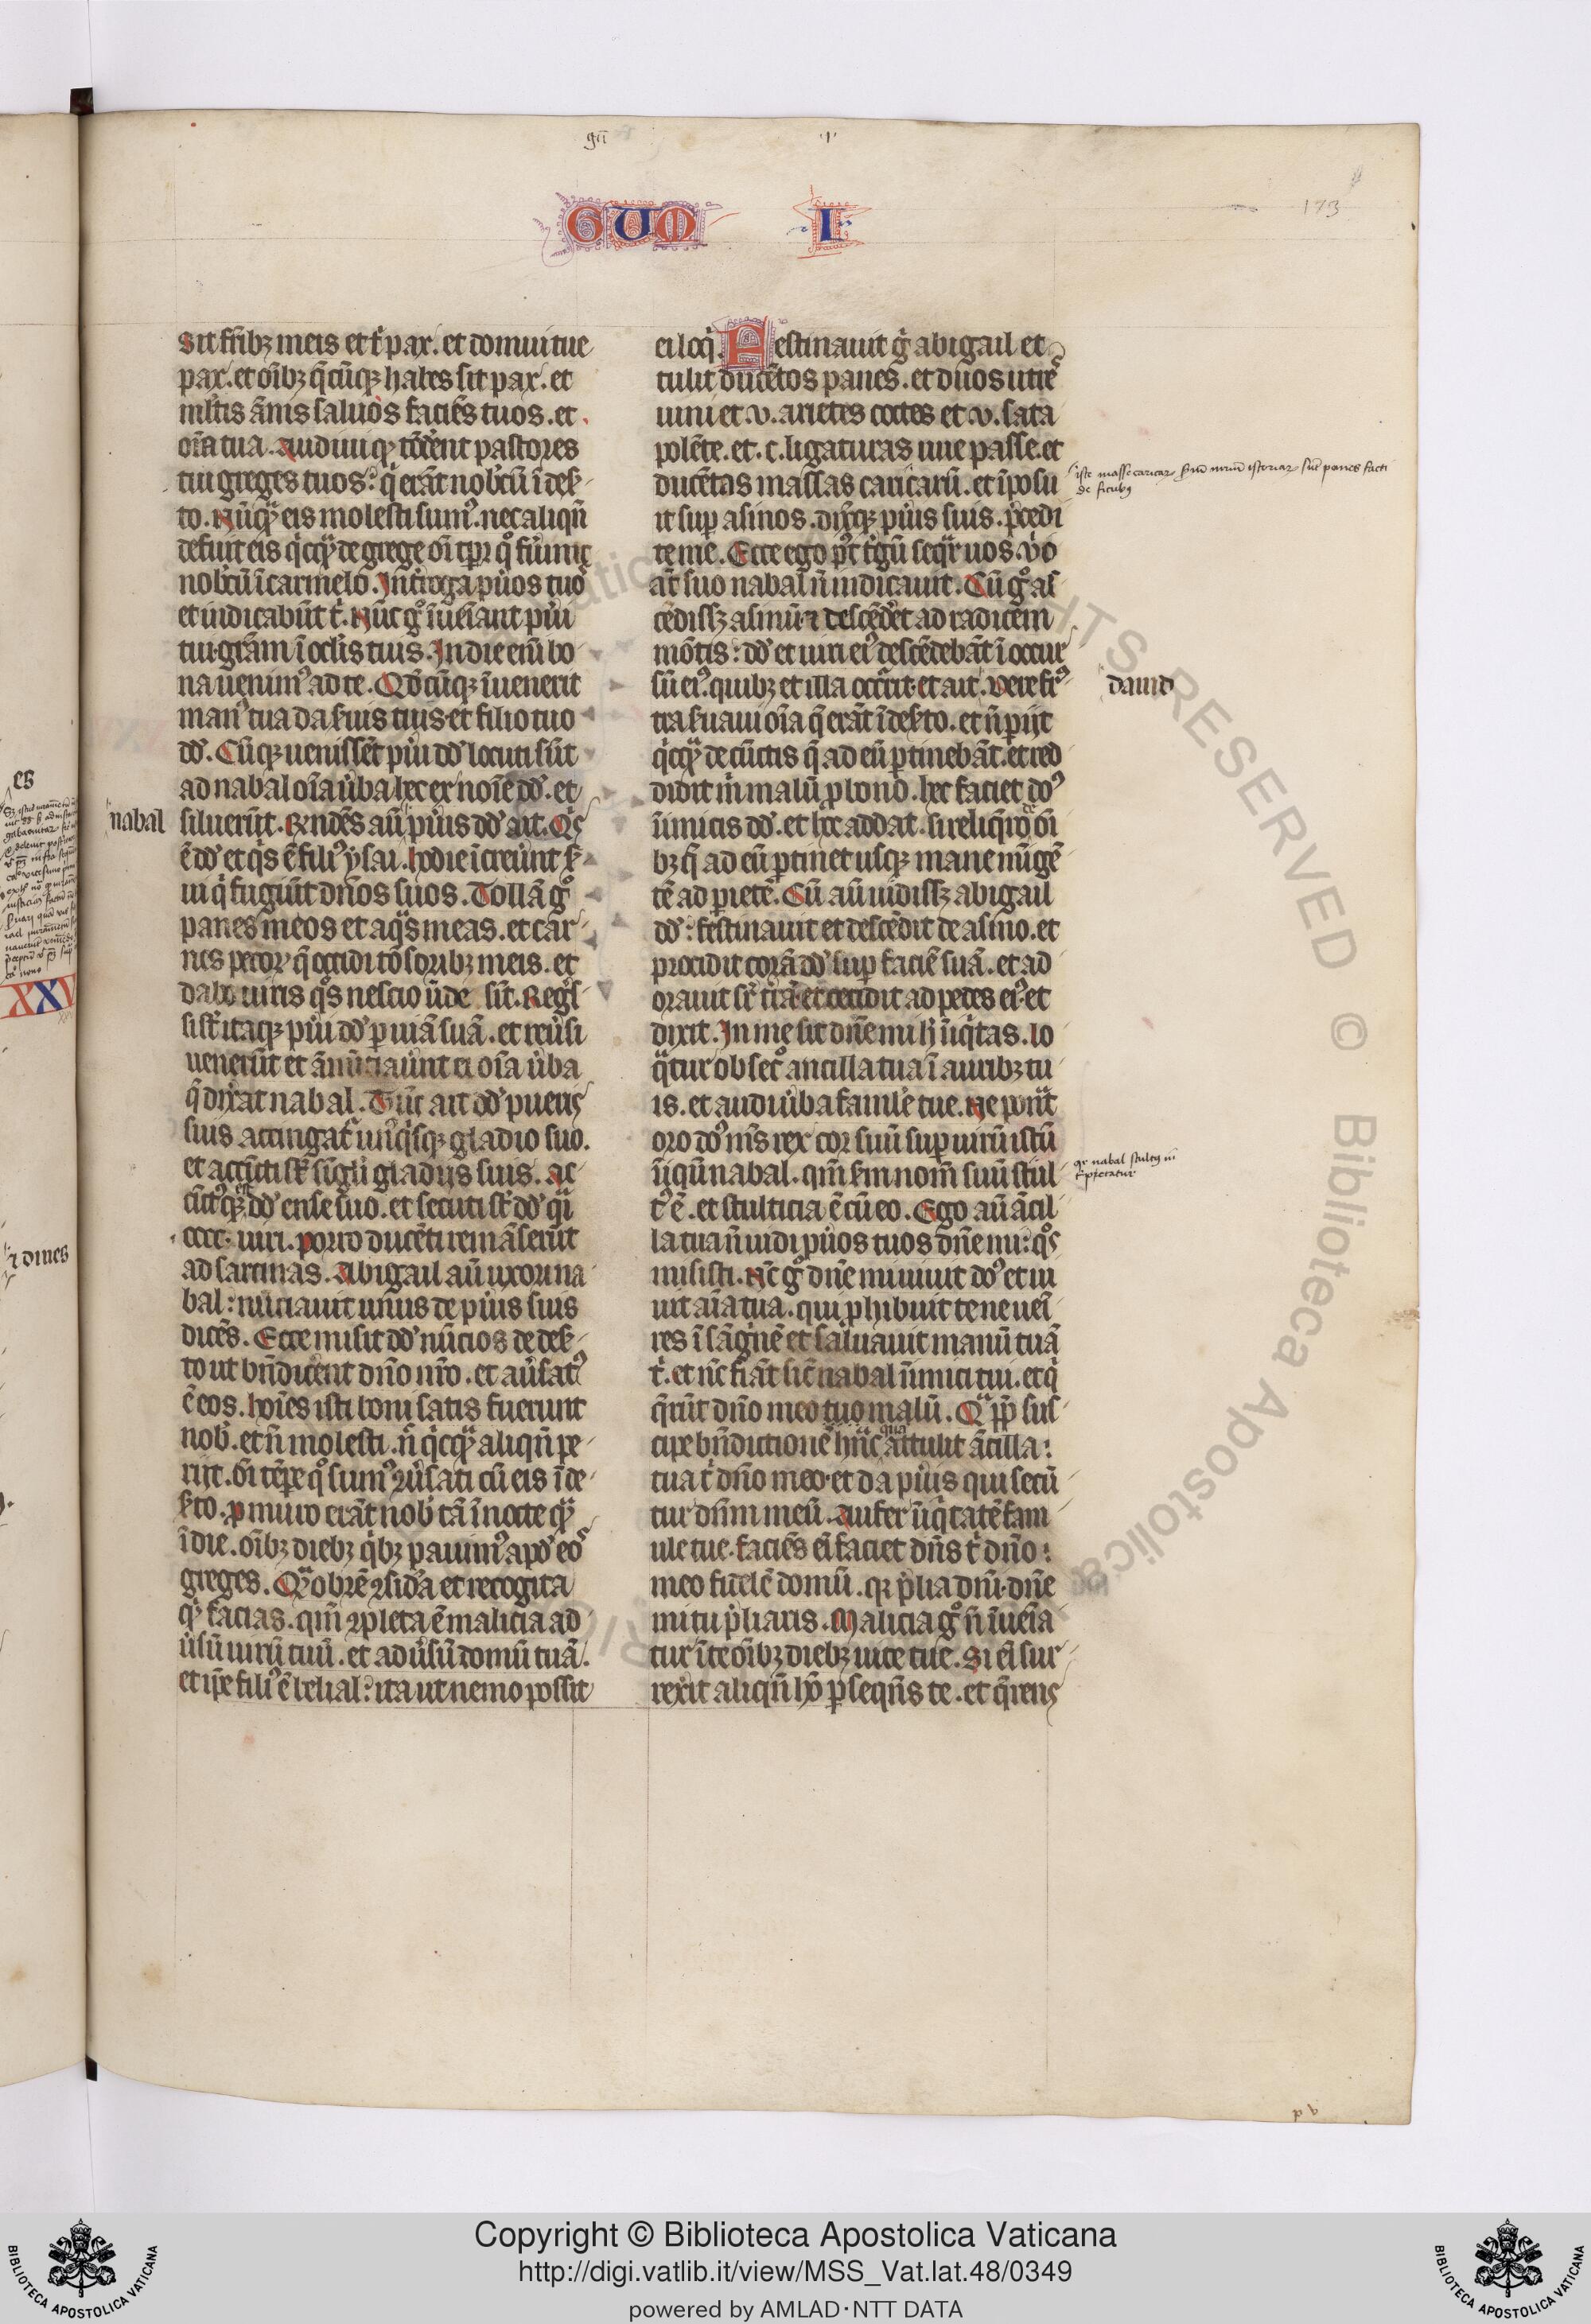 gū
·ı·
GUM I
173
Sit fr̄ibȝ meis et t̾ pax. et domui tue
pax. et oībȝ q̄cūqȝ habes sit pax. et
ml̄tis ānis saluos faciēs tuos. et
oīa tua. Audiui qȝ tōdēnt pastores
tui greges tuos: q̾ erāt nob̾cū ī des̾
to. Nūq̄ȝ eis molesti sumꝰ. nec aliqn̄
defuit eis q̾cq̄ȝ de grege oī tp̄r qͦ fūnīt
nob̾cū ī carmelo. Int̾roga pūos tuoˢ
et īdicabūt t̾. Nūc gͦ īueīant pūi
tui grām ī ocl̄is tuis. In die enī bo
na uenimꝰ ad te. Qd̄cūqȝ īuenerit
manꝰ tua da s̾uis tuis et filio tuo
dd̄. Cūqȝ uenissēt pūi dd̄ locuti sūt
ad nabal oīa ūba hec ex noīe dd̄. et
nabal
siluerūt. Rn̄dēs aū pūis dd̄ ait. Qˢ
ē dd̄ et q̾s ē filiꝰ ysai. hodie īcreūnt s̾
ui q̾ fugiūt dn̄os suos. Tollā gͦ
panes meos et aq̄s meas. et car
nes pecoꝝ q̄ occidi tōsoribȝ meis. et
dabo uiris qͦs nescio ūde sūt. Reg̾s
si s̄t itaqȝ pūi dd̄ ꝑ uiā suā. et reūsi
uenerūt et ānūciaūnt ei oīa ūba
q̄ dix̾at nabal. Tūc ait dd̄ pueris
suis accingat̾ unꝰq̾sqȝ gladio suo.
et accīcti s̄t sīgl̾i gladijs suis. Ac
cīctꝰqȝ est dd̄ ense suo. et secuti s̄t dd̄ q̄i
cccc. uiri. porro ducēti remāserūt
ad sarcinas. Abigail aū uxori na
bal: nūciauit unus de pūis suis
dicēs. Ecce misit dd̄ nūcios de des̾
to ut bn̄dicēnt dn̄o nr̄o. et aūsatꝰ
ē eos. hoīes isti boni satis fuerunt
nob̾. et n̄ molesti. n̄ q̾cq̄ȝ aliqn̄ pe
rijt. oī tēpe qͦ sumꝰ ꝯūsati cū eis ī de
s̾to. ꝓ muro erāt nob̾ tā ī nocte q̄ȝ
ī die. oībȝ diebȝ q̾bȝ pauimꝰ apd̾ eoˢ
greges. Qāobrē ꝯsid̾a et recogita
q̾ȝ facias. qm̄ ꝯpleta ē malicia ad
ūsū uirū tuū. et adūsū domū tuā.
et ip̄e filiꝰ ē belial: ita ut nemo possit
ei loq̾. Festinauit g̾ abigail et
tulit ducētos panes. et duos utrēˢ
uini et .v. arietes coctos et .v. sata
polēte. et .c. ligaturas uue passe. et
ducētas massas caricarū. et īposu
it suꝑ asinos. dix̾qȝ pūis suis. p̾cedi
te me. Ecce ego pꝰt t̾gū seq̄r uos. v̾o
at̾ suo nabal n̄ indicauit. Cū gͦ as
cēdissȝ asinū ⁊ descēdēt ad radicem
mōtis: dd̄ et uiri eiꝰ descēdebāt ī occur
sū eiꝰ. quibȝ et illa occr̄it. et ait. Vere frꝰ
dauid
tra s̾uaui oīa q̄ erāt ī des̾to. et n̄ ꝑijt
q̾cq̄ȝ de cūctis q̄ ad eū ꝑtinebāt. et red
didit m̾ malū ꝓ bono. hec faciet dꝰ
īimicis dd̄. et hec addat. si reliq̾o de oī
bȝ q̄ ad eū ꝑtinet usqȝ mane mīgē
tē ad ꝑietē. Cū aū uidissȝ abigail
dd̄: festinauit et descēdit de asino. et
procidit corā dd̄ suꝑ faciē suā. et ad
orauit sr̄ t̾rā et cecidit ad pedes eiꝰ et
dixit. In me sit dn̄e mi h̾ īiq̾tas. lo
q̄tur obsecͦ ancilla tua ī auribȝ tu
is. et audi ūba famule tue. Ne ponāt
oro dꝰ m̄s rex cor suū suꝑ uirū istū
īiqū nabal. qm̄ s̄m nom̄ suū stul
tꝰ ē. et stulticia ē cū eo. Ego aū ācil
la tua n̄ uidi pūos tuos dn̄e mi: qͦˢ
misisti. Nc̄ gͦ dn̄e mi uiuit dꝰ et ui
uit aīa tua. qui ꝓhibuit te ne uēi
res ī sāg̾nē et saluauit manū tuā
t̾. et nc̄ fiāt sic̄ nabal īimici tui. et q̾
q̄rūt dn̄o meo tuo malū. Qā pp̄ sus
cipe bn̄dictionē hāc qua attulit ācilla:
tua t̾ dn̄o meo. et da pūis qui secū
tur dn̄m meū. Aufer īiq̾tatē fam
ule tue. faciēs eī faciet dn̄s t̾ dn̄o:
meo fidelē domū. qr p̾lia dn̄i. dn̄e
mi tu p̾liaris. Malicia gͦ n̄ īueīa
tur ī te oībȝ diebȝ uite tue. Si eī sur
rex̾it aliqn̄ hō ꝑseqn̄s te. et q̄rens
p v
Copyright © Biblioteca Apostolica Vaticana
http://digi.vatlib.it/view/MSS_Vat.lat.48/0349
powered by AMLAD·NTT DATA
BIBLIOTECA APOSTOLICA VATICANA
BIBLIOTECA APOSTOLICA VATICANA